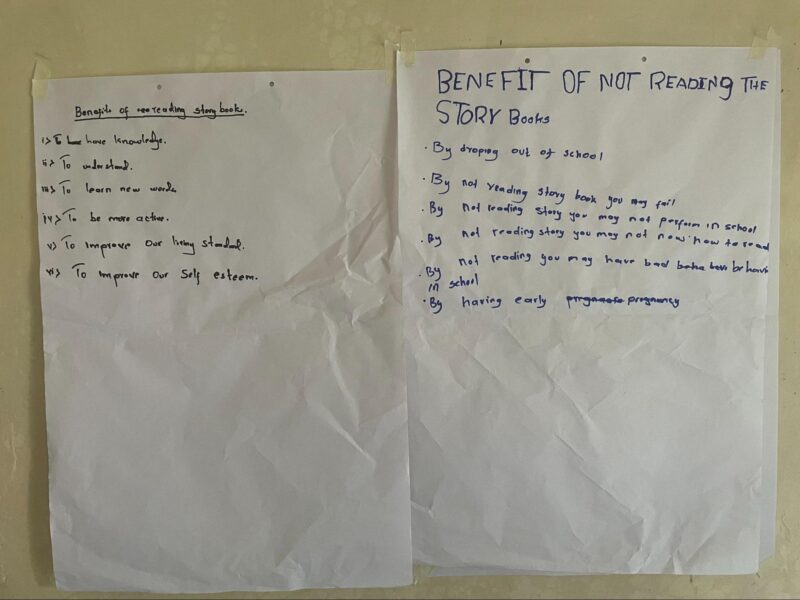 Benefits of reading story book.
i> To have knowledge.
ii> To understand.
iii> To learn new words
iv> To be more active.
v> To improve Our living standard.
vi> To improve Our Self esteem.
BENEFIT OF NOT READING THE
STORY BOOKS
· By droping out of school
· By not reading story book you may fail
· By not reading story you may not perform in school
· By not reading story you may not now how to read
· By not reading you may have bad behave
in school
· By having early pregnancy